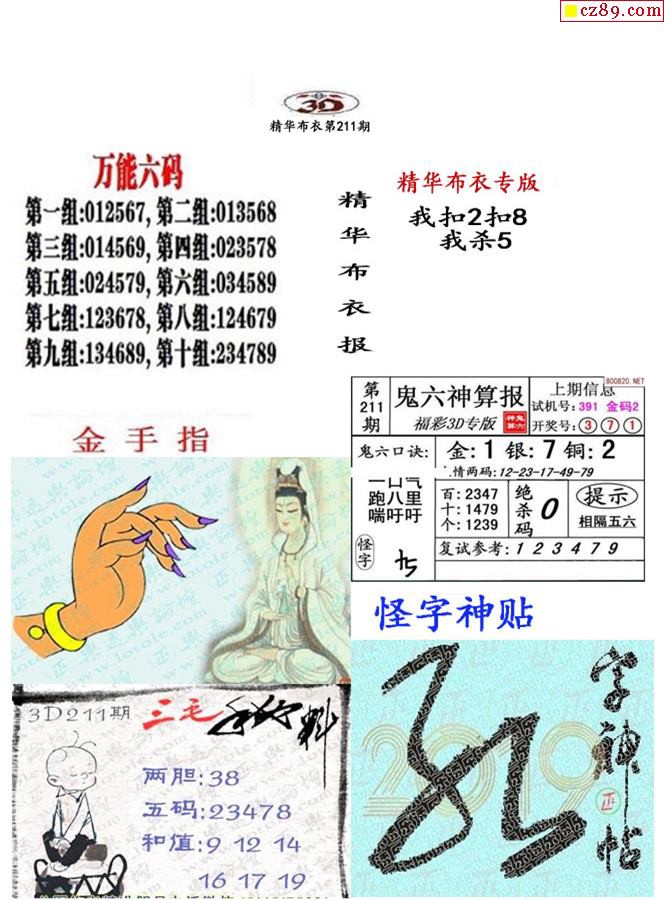 cz89.com
3D
精华布衣第211期
万能六码
第一组:012567,第二组:013568
第三组:014569,第四组:023578
第五组:024579,第六组:034589
第七组:123678,第八组:124679
第九组:134689,第十组:234789
精华布衣报
精华布衣专版
我扣2扣8
我杀5
800820.NET
第211期
鬼六神算报
福彩3D专版
上期信息
试机号:391 金码2
开奖号:371
鬼六口诀:
金:1 银:7 铜:2
情两码:12-23-17-49-79
一口气
跑八里
喘吁吁
百:2347
十:1479
个:1239
绝杀码
0
提示
相隔五六
怪字
复试参考:1 2 3 4 7 9
金手指
怪字神贴
2019
字神帖
3D211期
三毛
料
两胆:38
五码:23478
和值:9 12 14
16 17 19